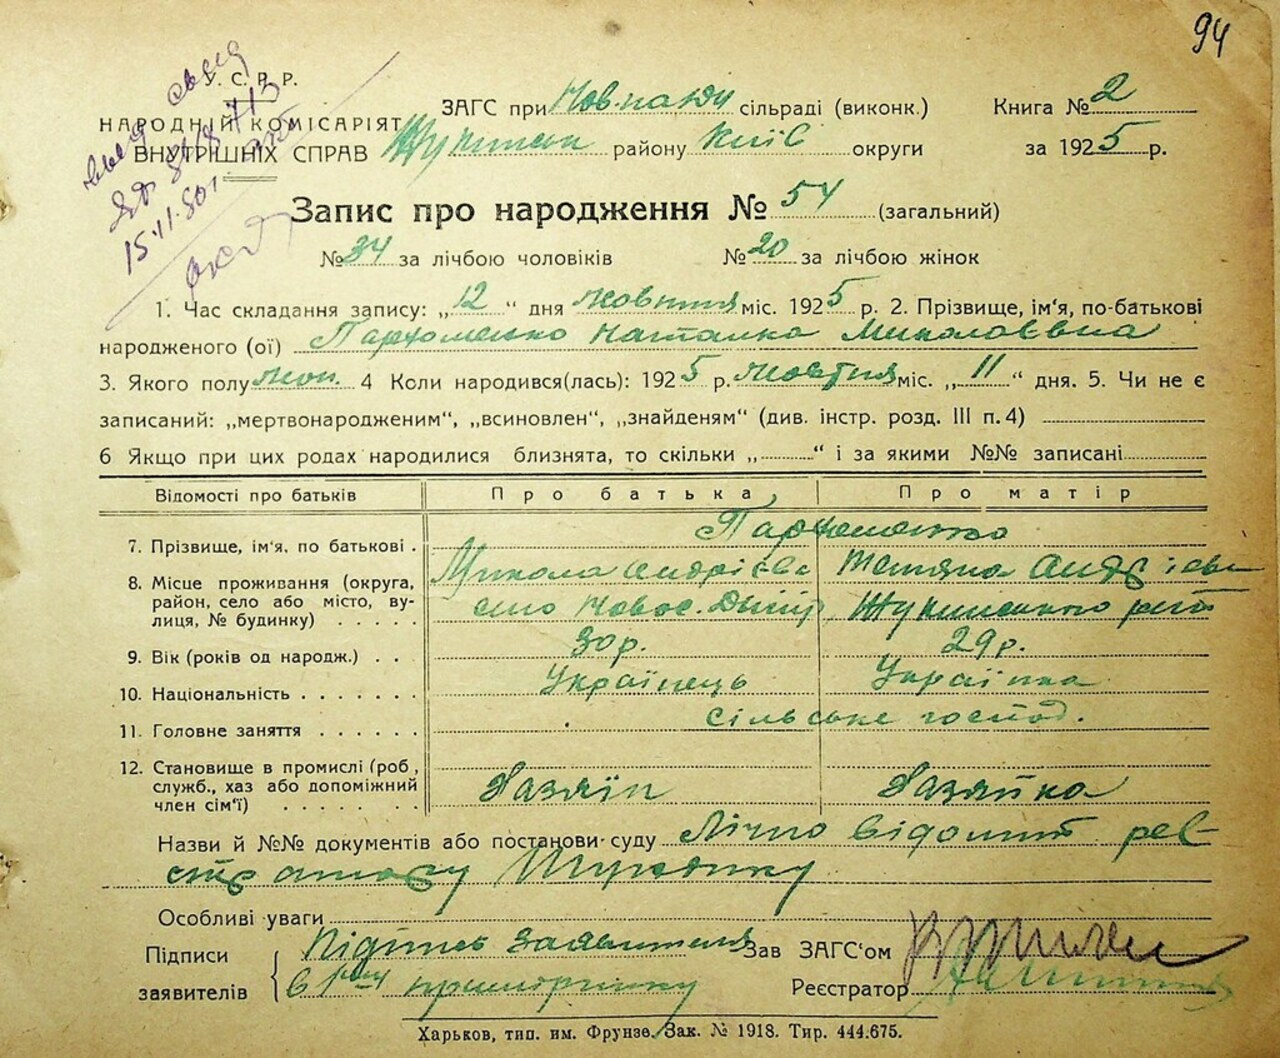 94
У. С. Р. Р.
НАРОДНІЙ КОМІСАРІЯТ
ВНУТРІШНІХ СПРАВ
ЗАГС при сільраді (виконк.) Книга № 2
району Київ округи за 1925 р.
Запис про народження № 54 (загальний)
№ 34 за лічбою чоловіків № 20 за лічбою жінок
1. Час складання запису: „12“ дня жовтня міс. 1925 р. 2. Прізвище, ім‘я, по-батькові
народженого (ої) Пархоменко Наталка Миколаєвна
3. Якого полу жон. 4 Коли народився(лась): 1925 р. жовтня міс. „11“ дня. 5. Чи не є
записаний: „мертвонародженим“, „всиновлен“, „знайденям“ (див. інстр. розд. III п. 4)
6 Якщо при цих родах народилися близнята, то скільки „ “ і за якими №№ записані
Відомості про батьків Про батька Про матір
7. Прізвище, ім‘я, по батькові . Пархоменко
Микола Андрієв Тетяна Андрієв
8. Місце проживання (округа,
район, село або місто, ву-
лиця, № будинку) . . . . . село Новос.
9. Вік (років од народж.) . . 30 р. 29 р.
10. Національність . . . . . . . Українець Українка
11. Головне заняття . . . . . . сільське господ.
12. Становище в промислі (роб,
служб., хаз або допоміжний
член сім‘ї) . . . . . . . Хазяїн Хазяйка
Назви й №№ документів або постанови суду Лічно відомий
Особливі уваги
Підписи
заявителів
Підпись заявителя
в 1
примірнику
Зав ЗАГС‘ом
Реєстратор
Харьков, тип. им. Фрунзе. Зак. № 1918. Тир. 444.675.